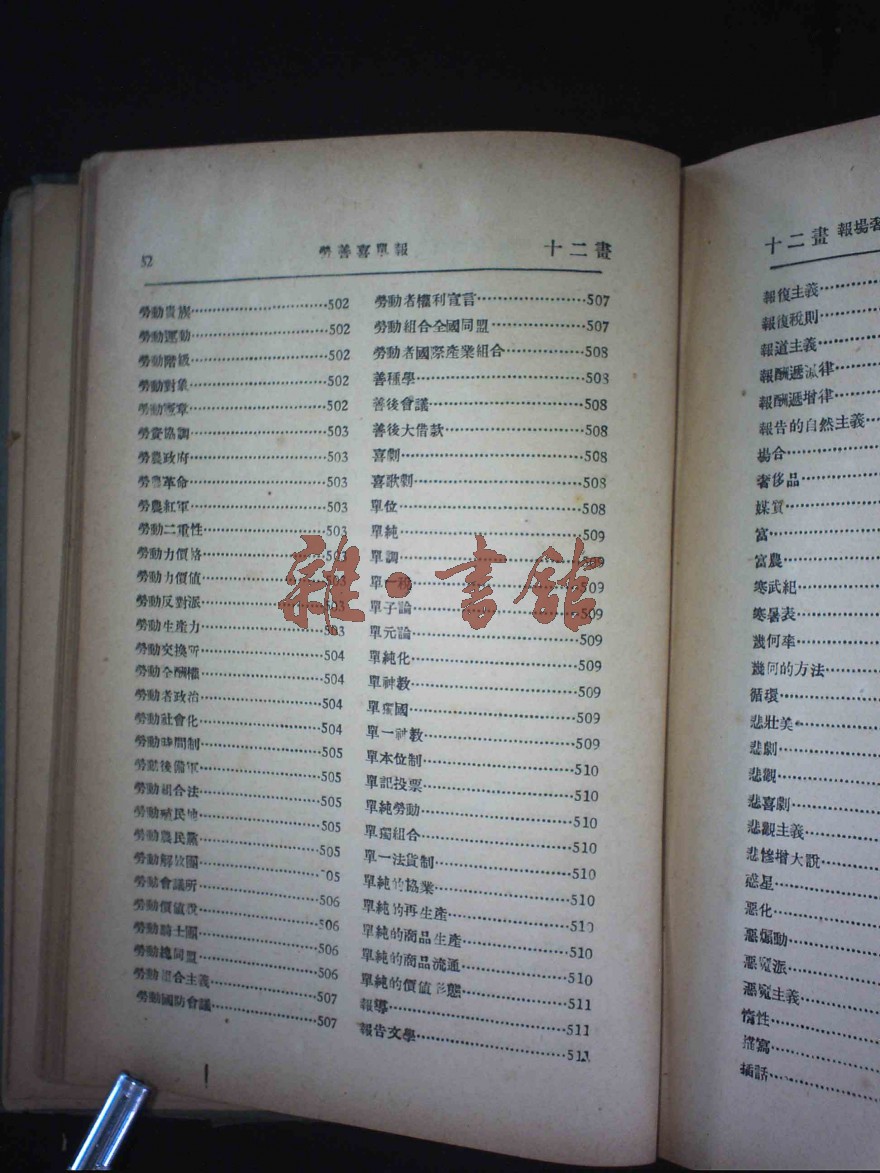 52 勞善喜單報 十二畫
勞動貴族 502
勞動運動 502
勞動階級 502
勞動對象 502
勞動憲章 502
勞資協調 503
勞農政府 503
勞農革命 503
勞農紅軍 503
勞動二重性 503
勞動力價格 503
勞動力價值 503
勞動反對派 503
勞動生產力 503
勞動交換所 504
勞動全酬權 504
勞動者政治 504
勞動社會化 504
勞動時間制 505
勞動後備軍 505
勞動組合法 505
勞動殖民地 505
勞動農民黨 505
勞動解放團 505
會議所 506
勞動價值說 506
勞動騎士團 506
勞動總同盟 506
勞動組合主義 507
勞動國防會議 507
勞動者權利宣言 507
勞動組合全國同盟 507
勞動者國際產業組合 508
善種學 508
善後會議 508
善後大借款 508
喜劇 508
喜歌劇 508
單位 508
單純 509
單調 509
單一稅 509
單子論 509
單元論 509
單純化 509
單神教 509
單 國 509
單一神教 509
單本位制 510
單記投票 510
單純勞動 510
單獨組合 510
單一法貨制 510
單純的協業 510
單純的再生產 510
單純的商品生產 510
單純的商品流通 510
單純的價值形態 511
報導 511
報告文學 511
雜·書館
十二畫 報場奢
報復主義
報復稅則
報道主義
報酬遞減律
報酬遞增律
報告的自然主義
場合
奢侈品
媒質
富
富農
寒武紀
寒暑表
幾何率
幾何的方法
循環
悲壯美
悲劇
悲觀
悲喜劇
悲觀主義
悲慘增大說
惑星
惡化
惡煽動
惡魔派
惡魔主義
惰性
描寫
插話